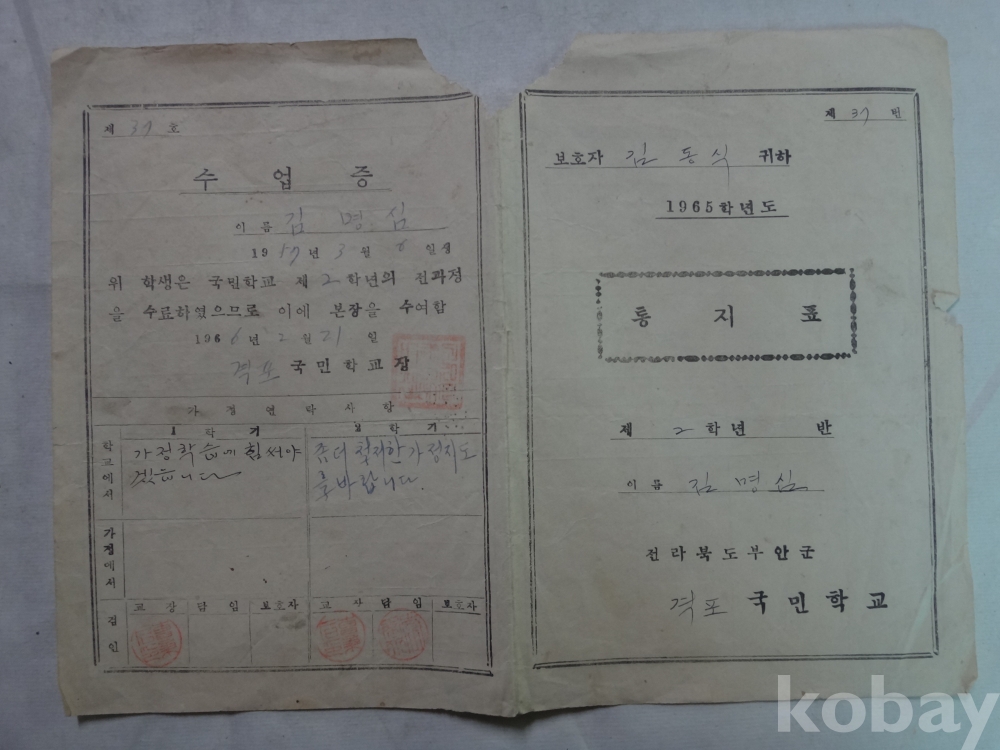 제 37 호
수 업 증
이름 김 명 심
1957년 3월 6일생
위 학생은 국민학교 제2학년의 전과정
을 수료하였으므로 이에 본장을 수여함
1966년 2월 21일
격포 국민학교장
가 정 연 락 사 항
1 학 기 2 학 기
학교에서
가정학습에 힘써야
겠습니다
좀더 철저한 가정지도
를 바랍니다.
가정에서
검인
교 장 담 임 보호자 교 장 담 임 보호자
제 37 번
보호자 김 동 식 귀하
1965학년도
통 지 표
제 2학년 반
이름 김 명 심
전라북도부안군
격포 국민학교
kobay